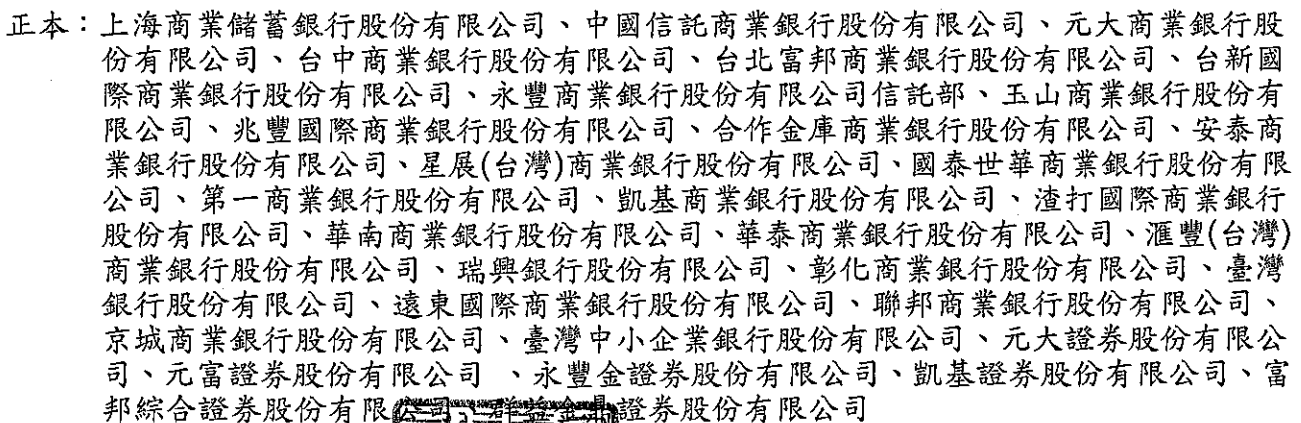 正本：上海商業儲蓄銀行股份有限公司、中國信託商業銀行股份有限公司、元大商業銀行股
份有限公司、台中商業銀行股份有限公司、台北富邦商業銀行股份有限公司、台新國
際商業銀行股份有限公司、永豐商業銀行股份有限公司信託部、玉山商業銀行股份有
限公司、兆豐國際商業銀行股份有限公司、合作金庫商業銀行股份有限公司、安泰商
業銀行股份有限公司、星展(台灣)商業銀行股份有限公司、國泰世華商業銀行股份有限
公司、第一商業銀行股份有限公司、凱基商業銀行股份有限公司、渣打國際商業銀行
股份有限公司、華南商業銀行股份有限公司、華泰商業銀行股份有限公司、滙豐(台灣)
商業銀行股份有限公司、瑞興銀行股份有限公司、彰化商業銀行股份有限公司、臺灣
銀行股份有限公司、遠東國際商業銀行股份有限公司、聯邦商業銀行股份有限公司、
京城商業銀行股份有限公司、臺灣中小企業銀行股份有限公司、元大證券股份有限公
司、元富證券股份有限公司 、永豐金證券股份有限公司、凱基證券股份有限公司、富
邦綜合證券股份有限公司、群益金鼎證券股份有限公司